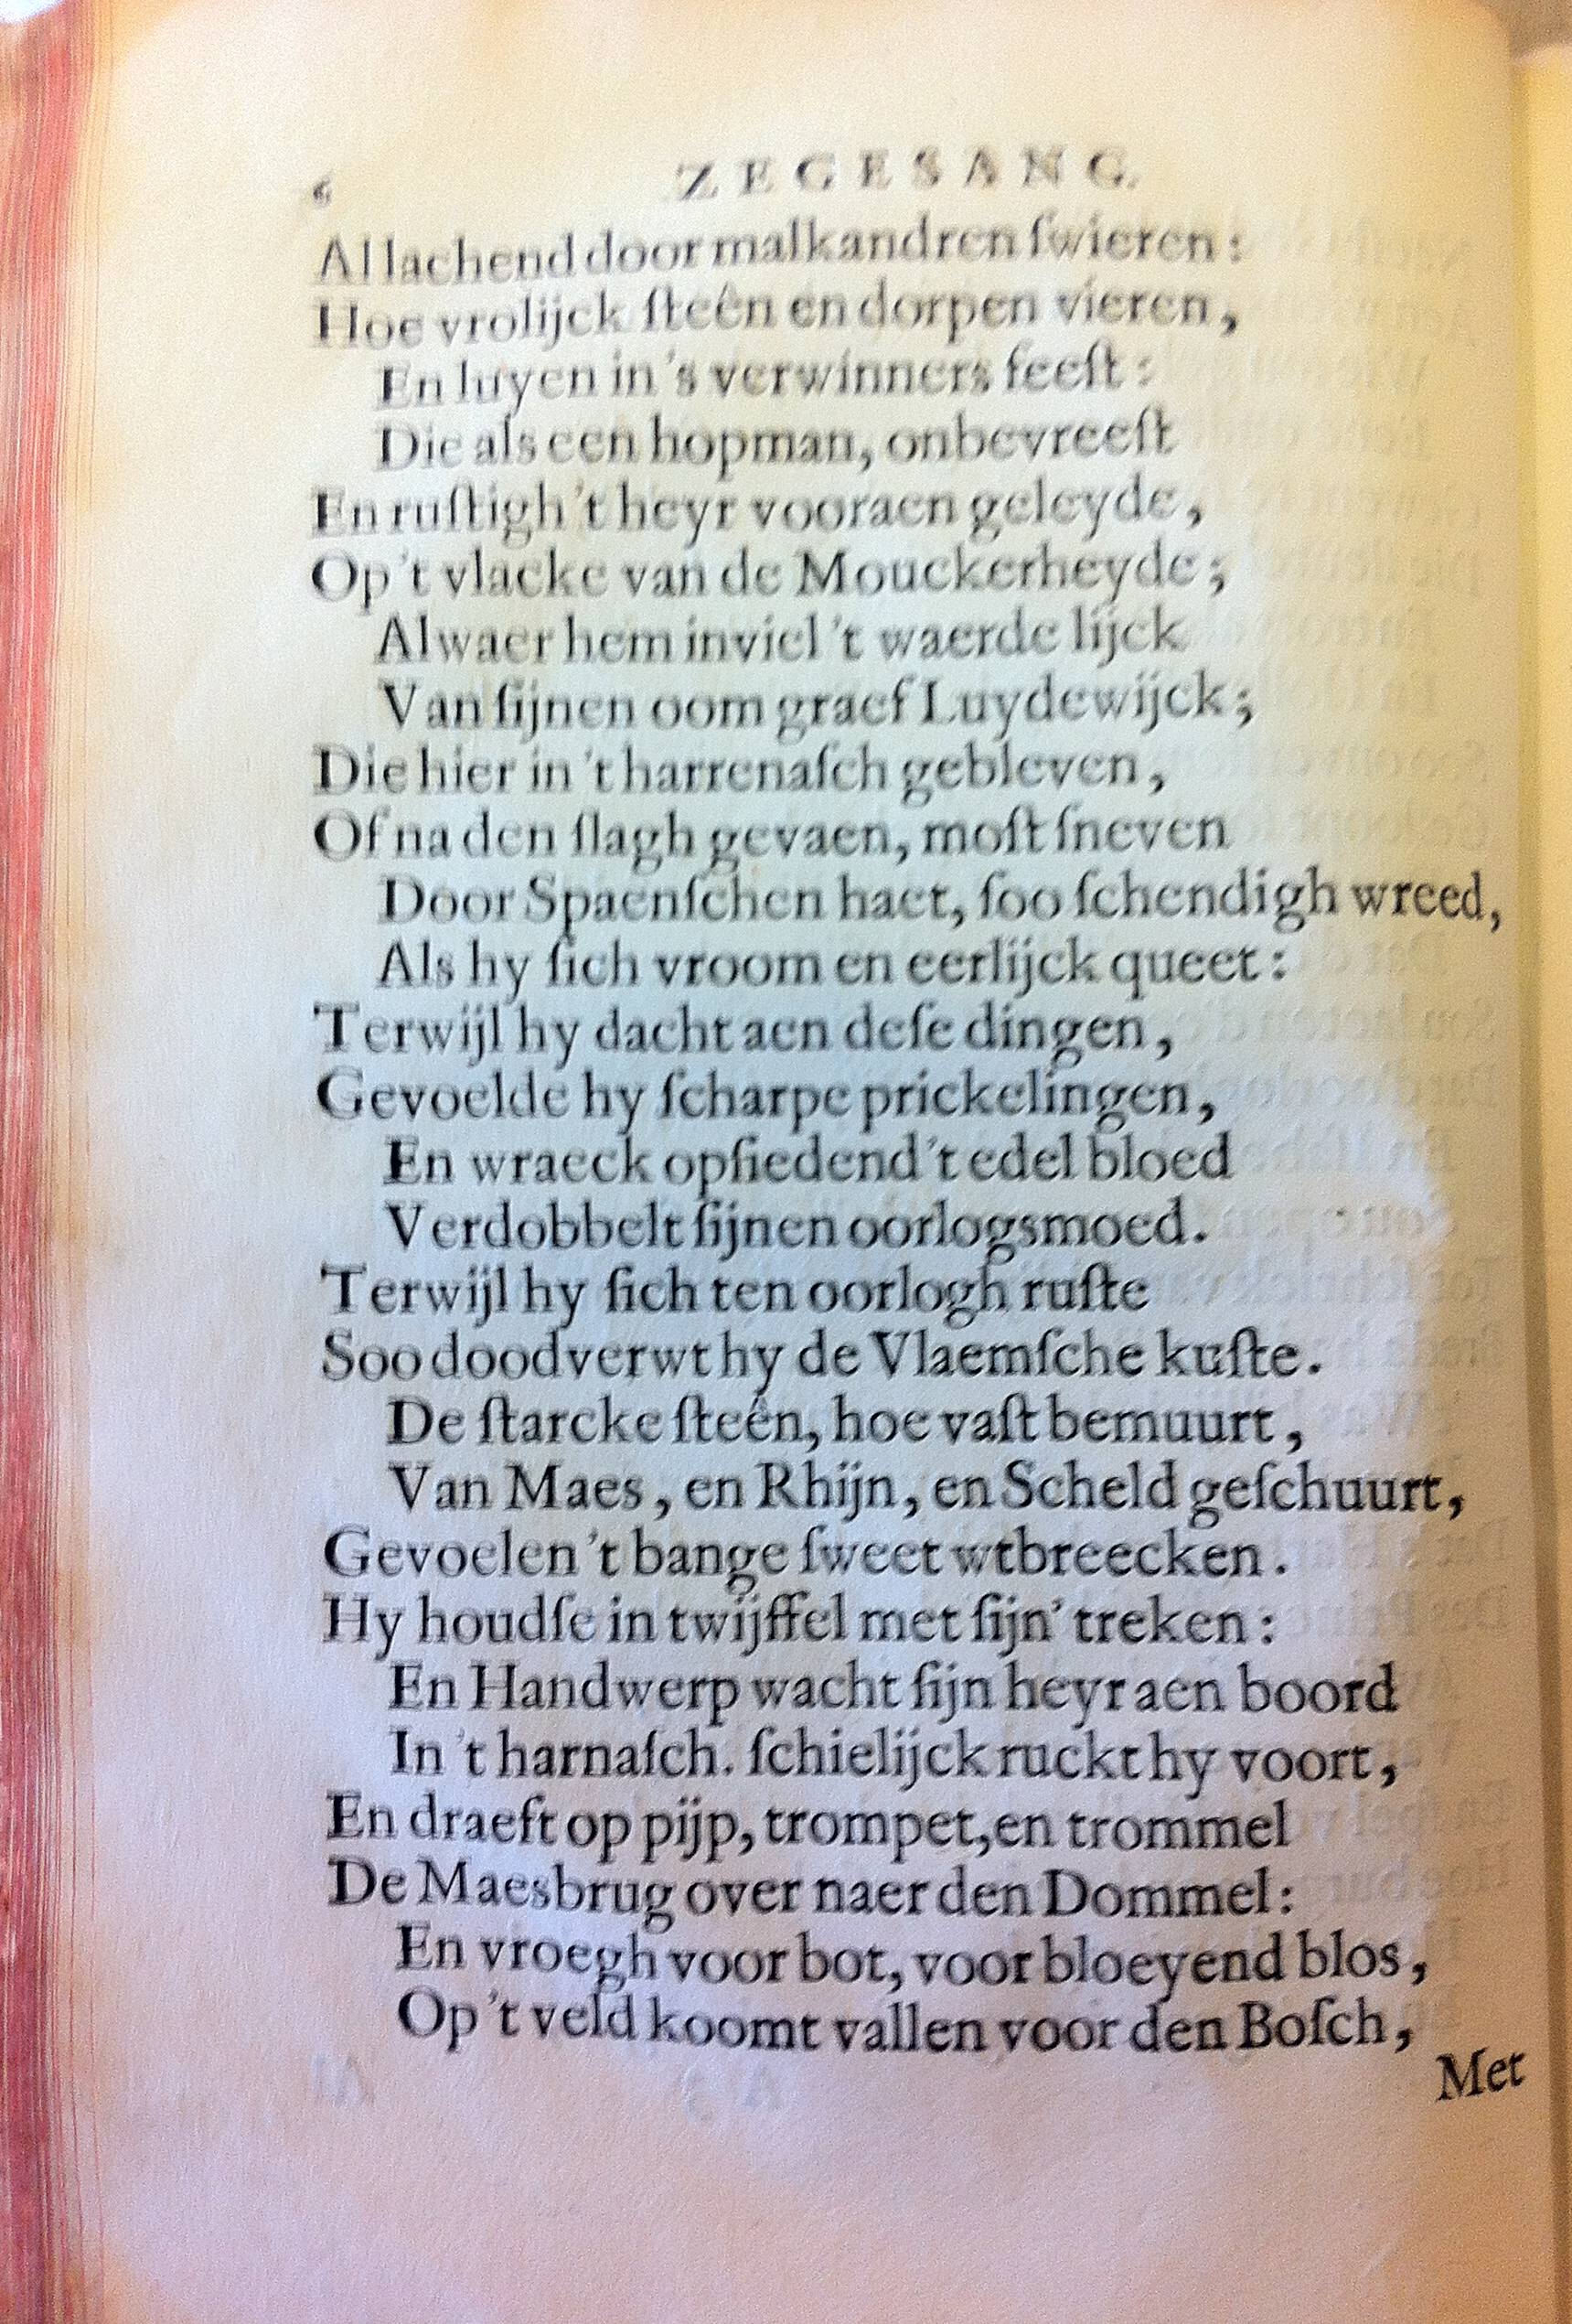 6 ZEGESANG.
Al lachend door malkandren ſwieren:
Hoe vrolijck ſteên en dorpen vieren,
En luyen in 's verwinners feeſt:
Die als een hopman, onbevreeſt
En ruſtigh 't heyr vooraen geleyde,
Op 't vlacke van de Mouckerheyde;
Alwaer hem inviel 't waerde lijck
Van ſijnen oom graef Luydewijck;
Die hier in 't harrenaſch gebleven,
Of na den ſlagh gevaen, moſt ſneven
Door Spaenſchen haet, ſoo ſchendigh wreed,
Als hy ſich vroom en eerlijck queet:
Terwijl hy dacht aen deſe dingen,
Gevoelde hy ſcharpe prickelingen,
En wraeck opſiedend 't edel bloed
Verdobbelt ſijnen oorlogsmoed.
Terwijl hy ſich ten oorlogh ruſte
Soo doodverwt hy de Vlaemſche kuſte.
De ſtarcke ſteên, hoe vaſt bemuurt,
Van Maes, en Rhijn, en Scheld geſchuurt,
Gevoelen 't bange ſweet wtbreecken.
Hy houdſe in twijffel met ſijn' treken:
En Handwerp wacht ſijn heyr aen boord
In 't harnaſch. ſchielijck ruckt hy voort,
En draeft op pijp, trompet, en trommel
De Maesbrug over naer den Dommel:
En vroegh voor bot, voor bloeyend blos,
Op 't veld koomt vallen voor den Boſch,
Met